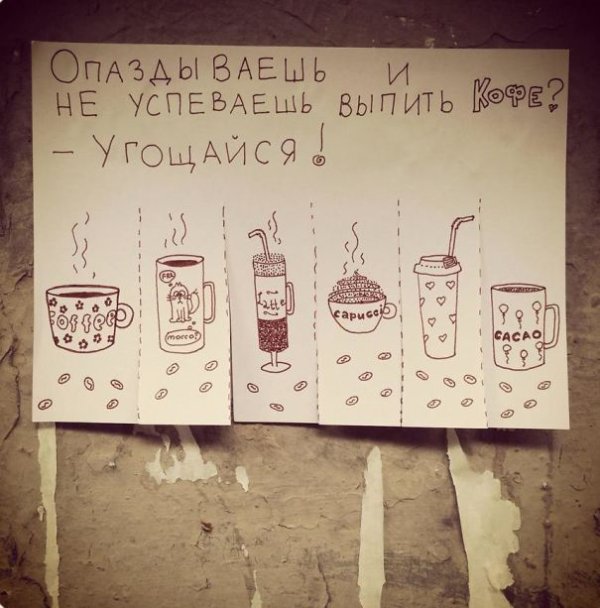 Опаздываешь и
не успеваешь выпить кофе?
– Угощайся!
Coffee
morro?
Latte
capucci
CACAO